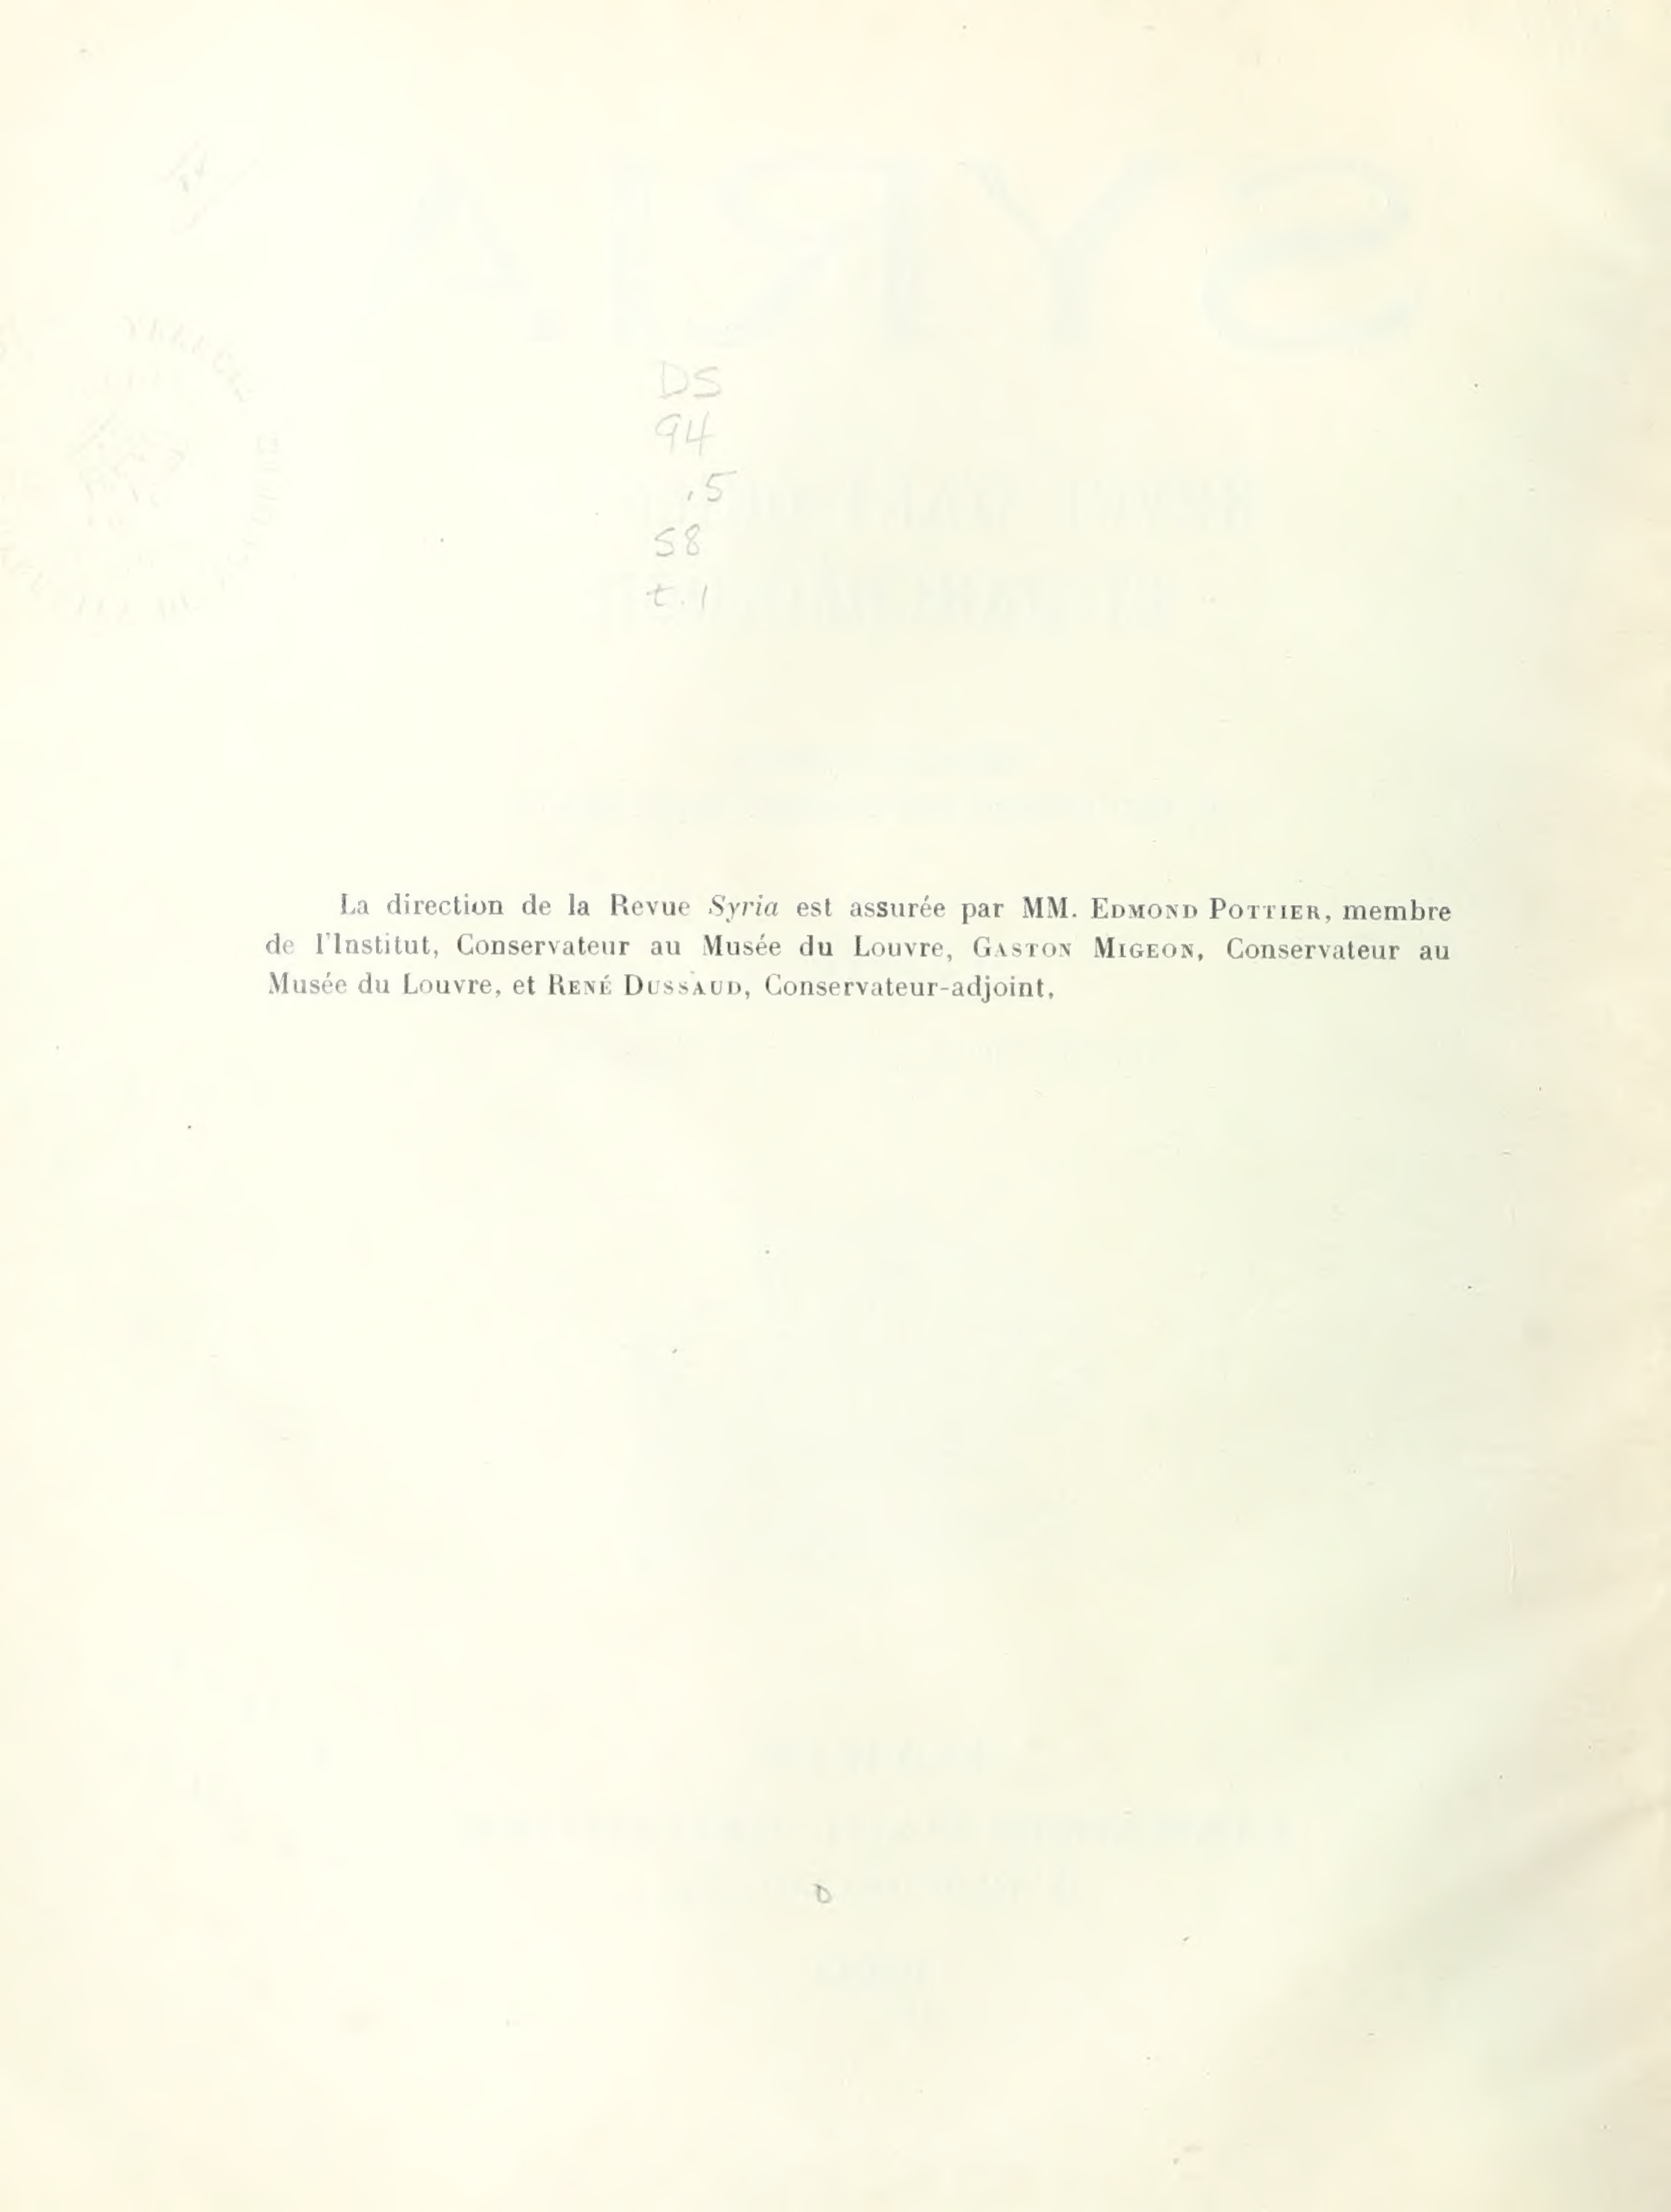 DS
94
.5
S8
t.1
La direction de la Revue Syria est assurée par MM. EDMOND POTTIER, membre
de l'Institut, Conservateur au Musée du Louvre, GASTON MIGEON, Conservateur au
Musée du Louvre, et RENÉ DUSSAUD, Conservateur-adjoint,